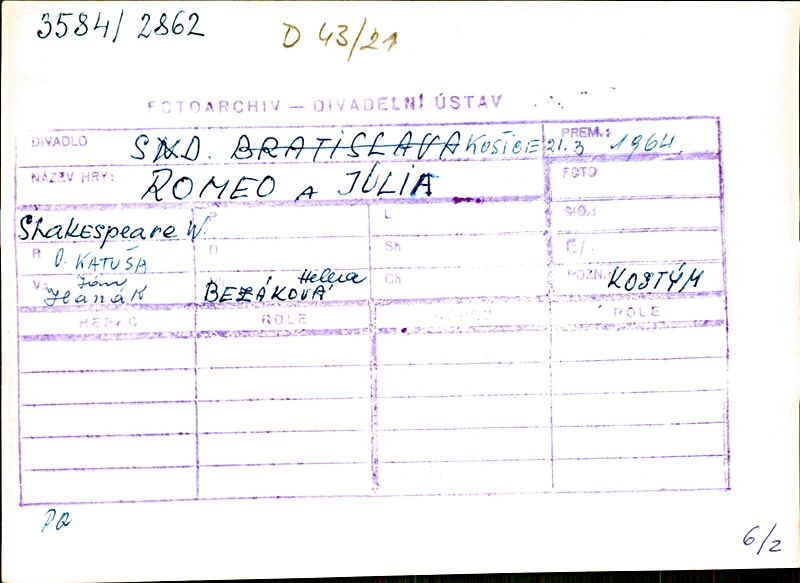 3584/ 2862
D 43/21
FOTOARCHIV — DIVADELNÍ ÚSTAV
DIVADLO SND. BRATISLAVA KOŠICE PREM.: 21.3 1964
NÁZEV HRY: ROMEO A JÚLIA FOTO
Shakespeare W. P L SIG.:
R O. KATUŠA D Sh Č/.
V: Ján Hanák BEZÁKOVÁ Helena Ch POZN.: KOSTÝM
HEREC ROLE HEREC ROLE
PQ
6/2